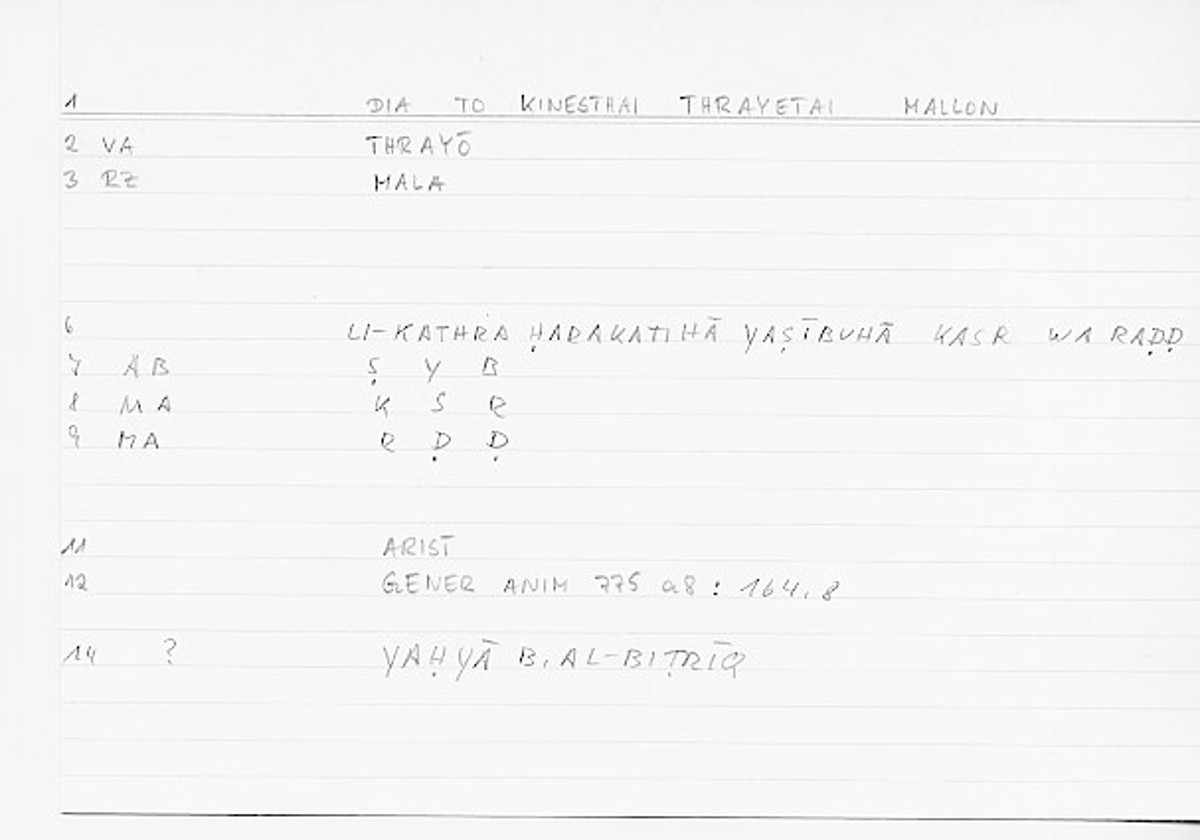 1 DIA TO KINESTHAI THRAYETAI MALLON
2 VA THRAYŌ
3 RZ MALA
6 LI-KATHRA ḤARAKATIHĀ YAṢĪBUHĀ KASR WA RAḌḌ
7 AB Ṣ Y B
8 MA K S R
9 MA R Ḍ Ḍ
11 ARIST
12 GENER ANIM 775 a8 : 164,8
14 ? YAḤYĀ B. AL-BIṬRĪQ